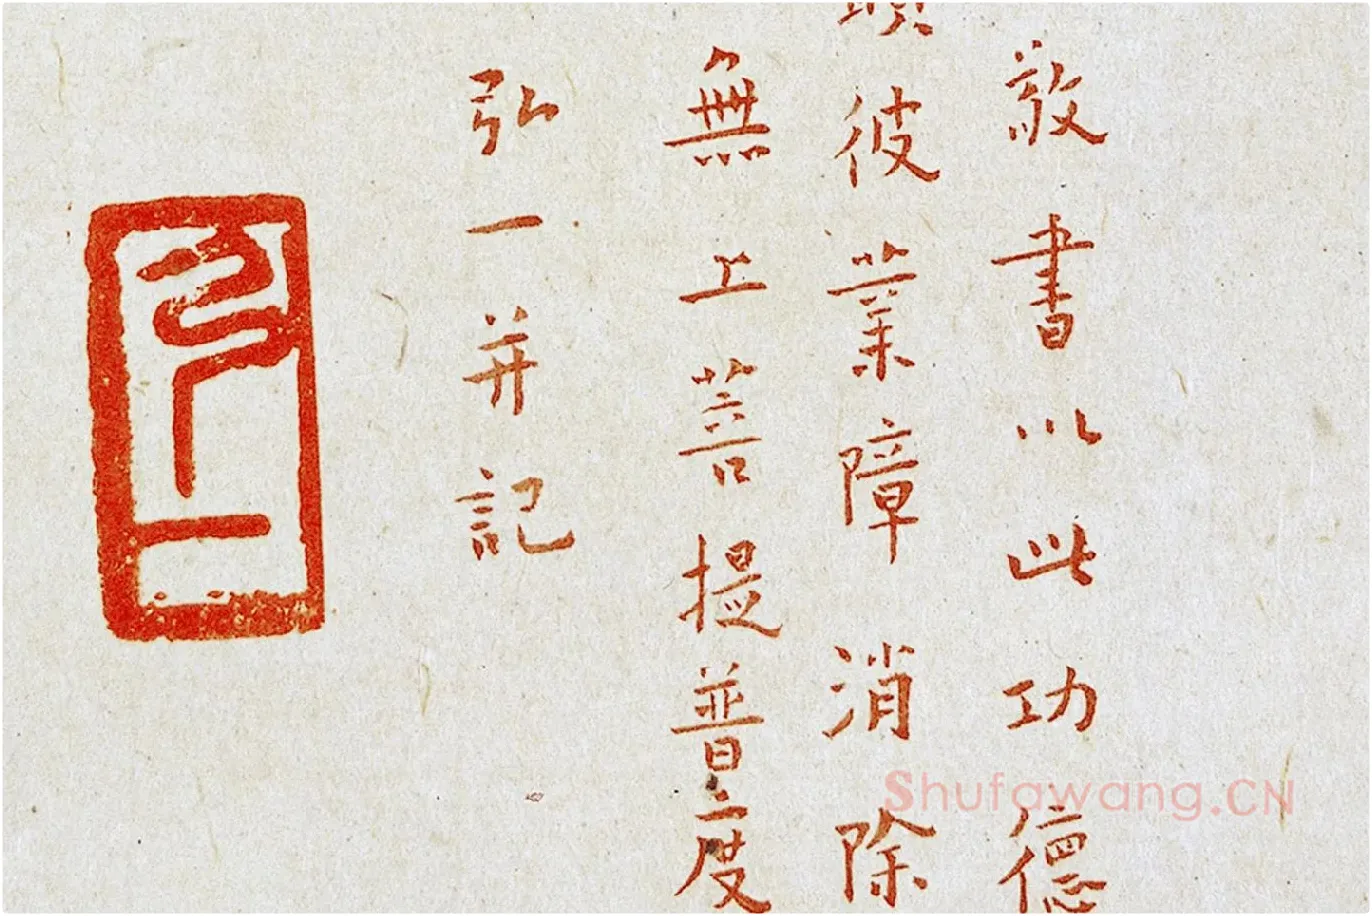 敬書以此功德
彼業障消除
無上菩提普度
弘一并記
Shufawang.CN